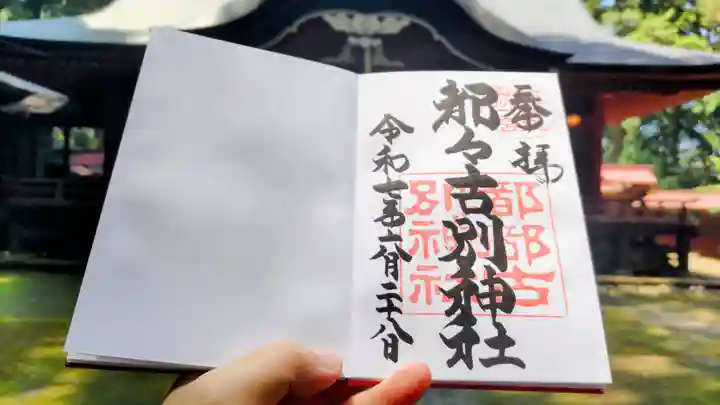 奉拝
都々古別神社
令和七年六月二十八日
都都古
別神社